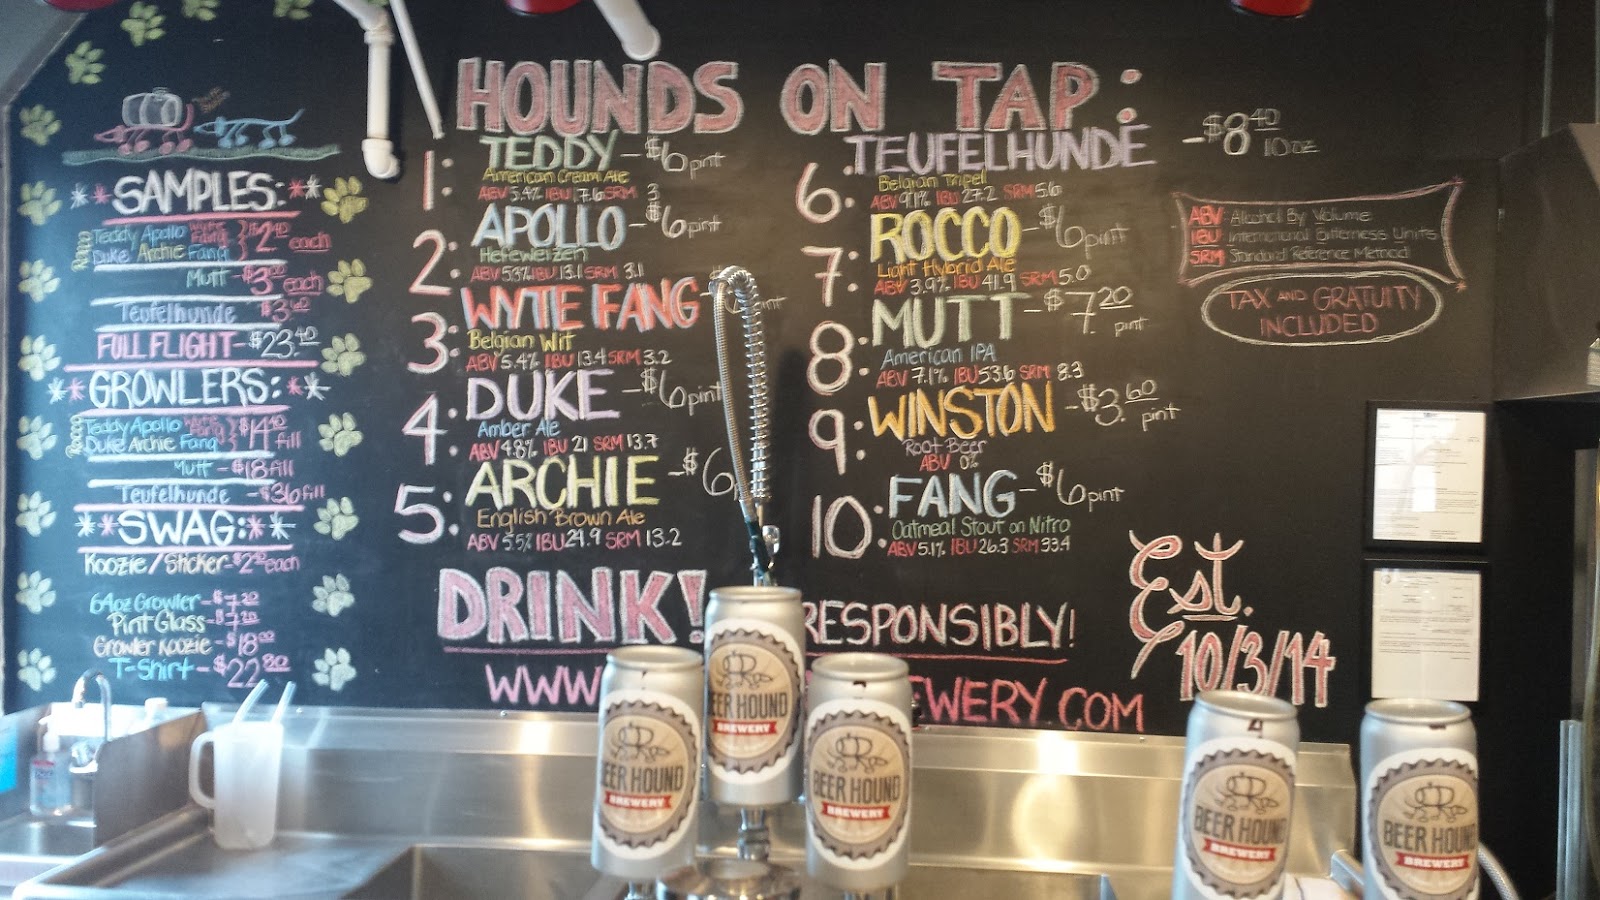 HOUNDS ON TAP:
1: TEDDY - $6 pint
American Cream Ale
ABV 5.4% IBU 17.6 SRM 3
2: APOLLO - $6 pint
Hefeweizen
ABV 5.3% IBU 13.1 SRM 3.1
3: WYTE FANG
Belgian Wit
ABV 5.4% IBU 13.4 SRM 3.2
4: DUKE - $6 pint
Amber Ale
ABV 4.8% IBU 21 SRM 13.7
5: ARCHIE - $6
English Brown Ale
ABV 5.5% IBU 24.9 SRM 13.2
6. TEUFELHUNDE - $8.40 10oz
Belgian Tripel
ABV 9.1% IBU 27.2 SRM 5.6
7: ROCCO - $6 pint
Light Hybrid Ale
ABV 3.9% IBU 41.9 SRM 5.0
8: MUTT - $7.20 pint
American IPA
ABV 7.1% IBU 53.6 SRM 8.3
9: WINSTON - $3.60 pint
Root Beer
ABV 0%
10: FANG - $6 pint
Oatmeal Stout on Nitro
ABV 5.1% IBU 26.3 SRM 33.4
DRINK! RESPONSIBLY!
WWW EWERY.COM
Est.
10/3/14
ABV: Alcohol By Volume
IBU: International Bitterness Units
SRM: Standard Reference Method
TAX AND GRATUITY
INCLUDED
**SAMPLES:**
Rocco Teddy Apollo Wyte Fang
Duke Archie Fang } $2.40 each
Mutt - $3.00 each
Teufelhunde - $3.60
FULL FLIGHT - $23.40
**GROWLERS:**
Rocco Teddy Apollo Wyte Fang
Duke Archie Fang } $14.40 fill
Mutt - $18 fill
Teufelhunde - $36 fill
**SWAG:**
Koozie/Sticker - $2.40 each
64oz Growler - $7.20
Pint Glass - $7.20
Growler Koozie - $18.00
T-Shirt - $22.80
BEER HOUND
BREWERY
BEER HOUND
BREWERY
BEER HOUND
BREWERY
BEER HOUND
BREWERY
BEER HOUND
BREWERY